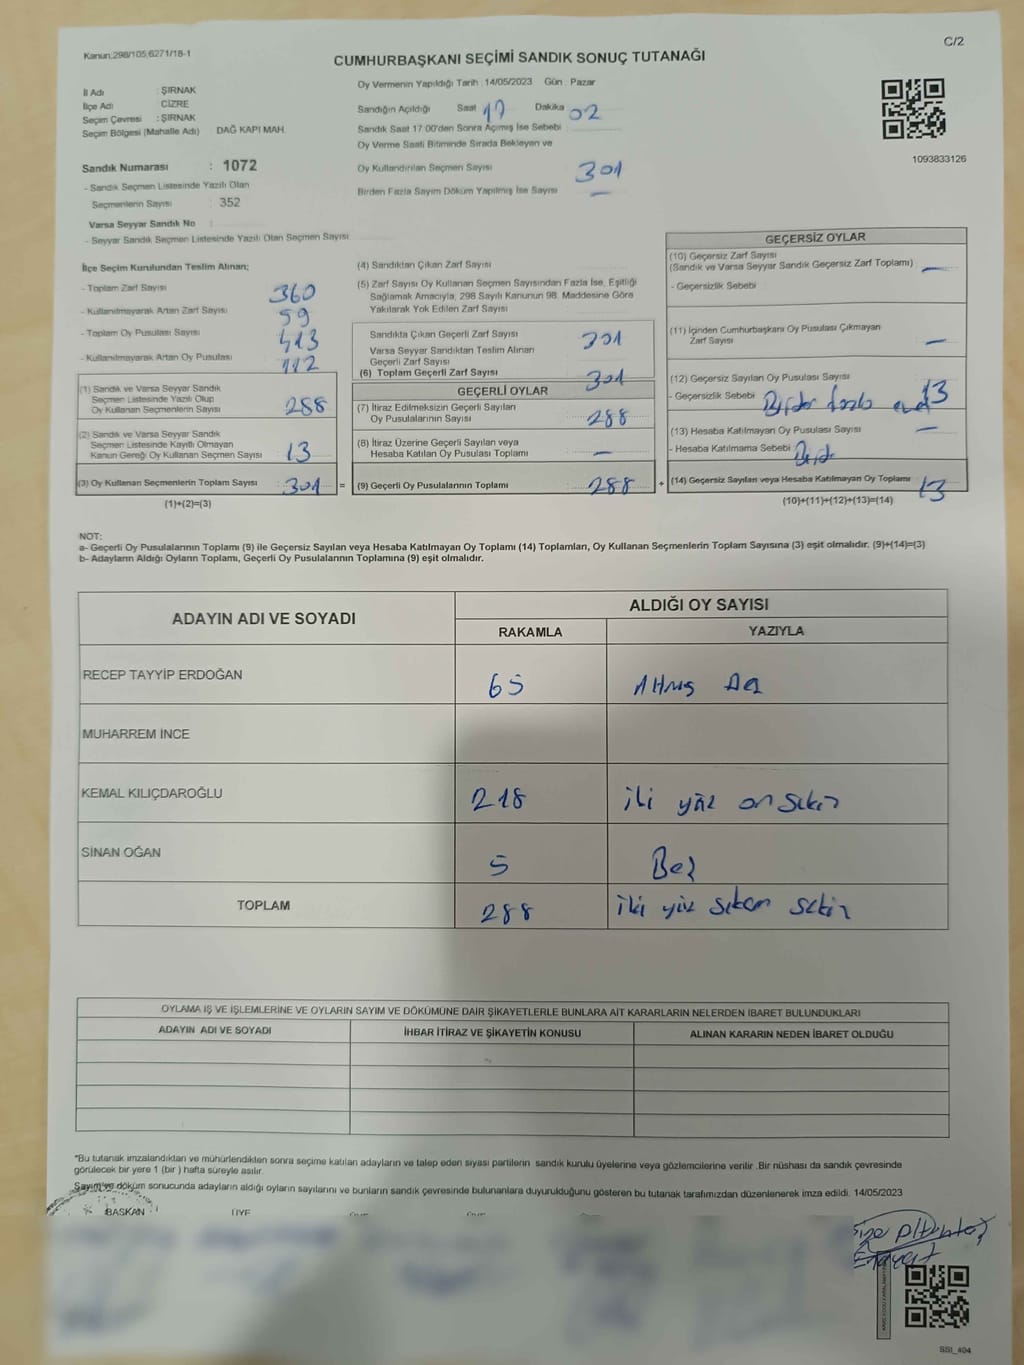 Kanun;298/105,6271/18-1
C/2
CUMHURBAŞKANI SEÇİMİ SANDIK SONUÇ TUTANAĞI
İl Adı : ŞIRNAK
İlçe Adı : CİZRE
Seçim Çevresi : ŞIRNAK
Seçim Bölgesi (Mahalle Adı) DAĞ KAPI MAH.
Sandık Numarası : 1072
- Sandık Seçmen Listesinde Yazılı Olan
Seçmenlerin Sayısı : 352
Varsa Seyyar Sandık No
- Seyyar Sandık Seçmen Listesinde Yazılı Olan Seçmen Sayısı
Oy Vermenin Yapıldığı Tarih : 14/05/2023 Gün : Pazar
Sandığın Açıldığı Saat 17 Dakika 02
Sandık Saat 17:00'den Sonra Açımış İse Sebebi
Oy Verme Saati Bitiminde Sırada Bekleyen ve
Oy Kullandırılan Seçmen Sayısı 301
Birden Fazla Sayım Döküm Yapılmış İse Sayısı —
1093833126
İlçe Seçim Kurulundan Teslim Alınan;
- Toplam Zarf Sayısı 360
- Kullanılmayarak Artan Zarf Sayısı 59
- Toplam Oy Pusulası Sayısı 413
- Kullanılmayarak Artan Oy Pusulası 112
(1) Sandık ve Varsa Seyyar Sandık
Seçmen Listesinde Yazılı Olup
Oy Kullanan Seçmenlerin Sayısı 288
(2) Sandık ve Varsa Seyyar Sandık
Seçmen Listesinde Kayıtlı Olmayan
Kanun Gereği Oy Kullanan Seçmen Sayısı 13
(3) Oy Kullanan Seçmenlerin Toplam Sayısı 301 =
(1)+(2)=(3)
(4) Sandıktan Çıkan Zarf Sayısı
(5) Zarf Sayısı Oy Kullanan Seçmen Sayısından Fazla İse, Eşitliği
Sağlamak Amacıyla; 298 Sayılı Kanunun 98. Maddesine Göre
Yakılarak Yok Edilen Zarf Sayısı
Sandıkta Çıkan Geçerli Zarf Sayısı 301
Varsa Seyyar Sandıktan Teslim Alınan
Geçerli Zarf Sayısı
(6) Toplam Geçerli Zarf Sayısı 301
GEÇERLİ OYLAR
(7) İtiraz Edilmeksizin Geçerli Sayılan
Oy Pusulalarının Sayısı 288
(8) İtiraz Üzerine Geçerli Sayılan veya
Hesaba Katılan Oy Pusulası Toplamı —
(9) Geçerli Oy Pusulalarının Toplamı 288 +
GEÇERSİZ OYLAR
(10) Geçersiz Zarf Sayısı
(Sandık ve Varsa Seyyar Sandık Geçersiz Zarf Toplamı) —
- Geçersizlik Sebebi
(11) İçinden Cumhurbaşkanı Oy Pusulası Çıkmayan
Zarf Sayısı —
(12) Geçersiz Sayılan Oy Pusulası Sayısı 13
- Geçersizlik Sebebi
(13) Hesaba Katılmayan Oy Pusulası Sayısı —
- Hesaba Katılmama Sebebi
(14) Geçersiz Sayılan veya Hesaba Katılmayan Oy Toplamı 13
(10)+(11)+(12)+(13)=(14)
NOT:
a- Geçerli Oy Pusulalarının Toplamı (9) ile Geçersiz Sayılan veya Hesaba Katılmayan Oy Toplamı (14) Toplamları, Oy Kullanan Seçmenlerin Toplam Sayısına (3) eşit olmalıdır. (9)+(14)=(3)
b- Adayların Aldığı Oyların Toplamı, Geçerli Oy Pusulalarının Toplamına (9) eşit olmalıdır.
ADAYIN ADI VE SOYADI
ALDIĞI OY SAYISI
RAKAMLA YAZIYLA
RECEP TAYYİP ERDOĞAN 65 Altmış
MUHARREM İNCE
KEMAL KILIÇDAROĞLU 218 iki yüz on sekiz
SİNAN OĞAN 5 Beş
TOPLAM 288 iki yüz seksen sekiz
OYLAMA İŞ VE İŞLEMLERİNE VE OYLARIN SAYIM VE DÖKÜMÜNE DAİR ŞİKAYETLERLE BUNLARA AİT KARARLARIN NELERDEN İBARET BULUNDUKLARI
ADAYIN ADI VE SOYADI İHBAR İTİRAZ VE ŞİKAYETİN KONUSU ALINAN KARARIN NEDEN İBARET OLDUĞU
"Bu tutanak imzalandıktan ve mühürlendikten sonra seçime katılan adayların ve talep eden siyasi partilerin sandık kurulu üyelerine veya gözlemcilerine verilir .Bir nüshası da sandık çevresinde
görülecek bir yere 1 (bir ) hafta süreyle asılır.
Sayım ve döküm sonucunda adayların aldığı oyların sayılarını ve bunların sandık çevresinde bulunanlara duyurulduğunu gösteren bu tutanak tarafımızdan düzenlenerek imza edildi. 14/05/2023
BAŞKAN ÜYE
SSI_404